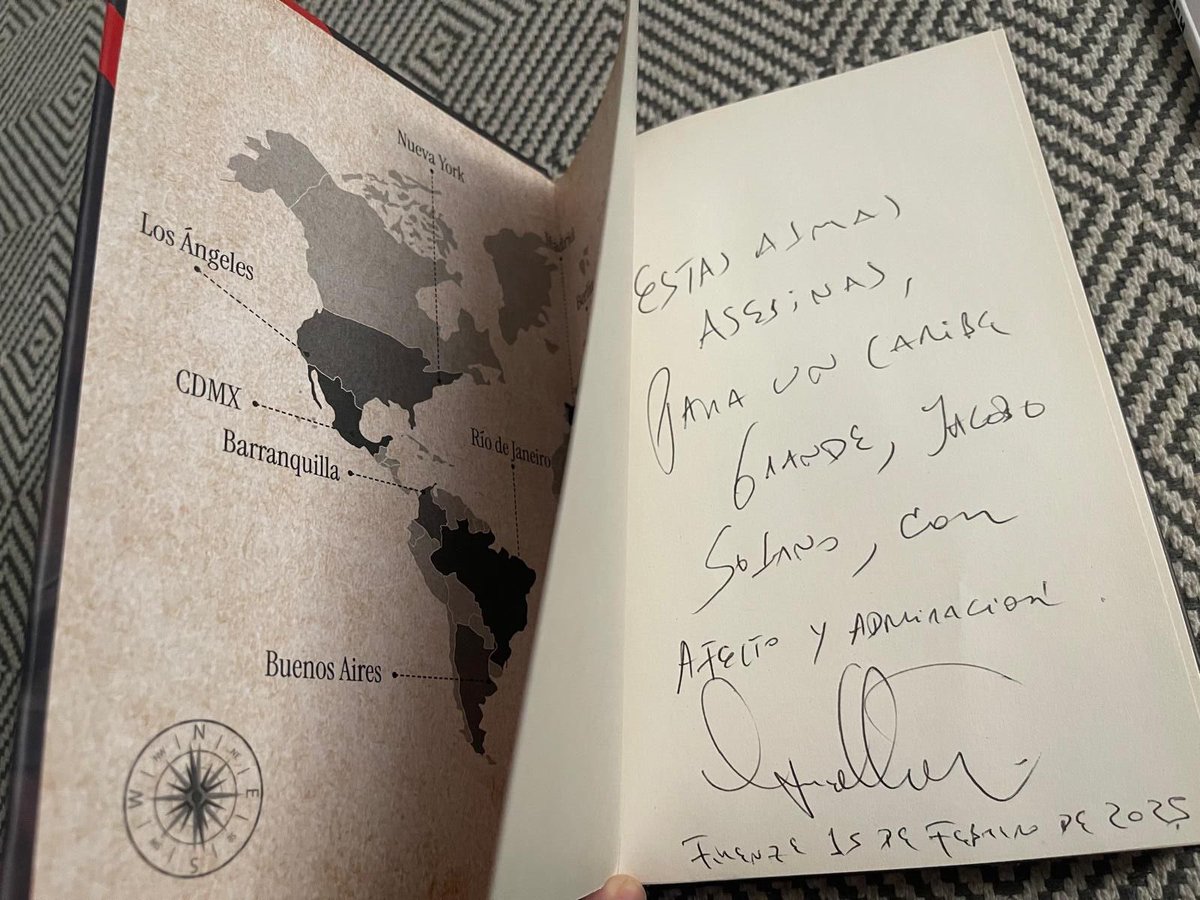 Nueva York
Los Ángeles
CDMX
Barranquilla
Río de Janeiro
Buenos Aires
N
NW
NE
W
E
S
ESTAS ALMAS
ASESINAS,
PARA UN CARIBE
GRANDE, JACOBO
SOLANO, CON
AFECTO Y ADMIRACIÓN.
15 DE FEBRERO DE 2025